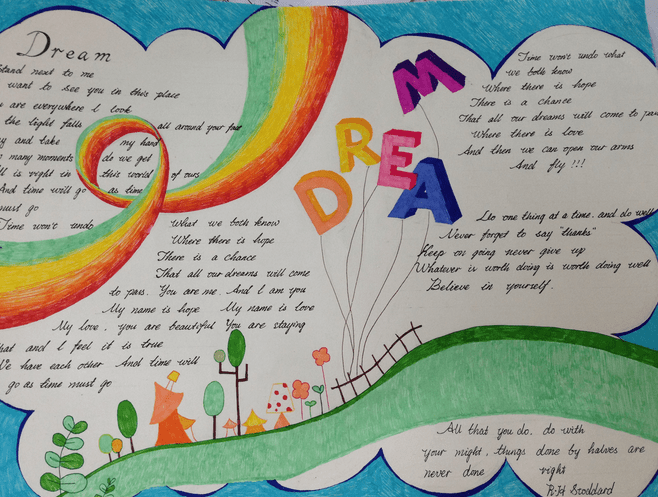 Dream
Stand next to me
want to see you in this place
are everywhere I look
the light falls all around your feet
and take my hand
many moments do we get
is right in this world of ours
And time will go as time
must go
Time won't undo What we both know
Where there is hope
There is a chance
That all our dreams will come
to pass. You are me. And I am you
My name is hope My name is love
My love, you are beautiful You are staying
that and I feel it is true
We have each other And time will
go as time must go
DREAM
Time won't undo what
we both know
Where there is hope
There is a chance
That all our dreams will come to
Where there is love
And then we can open our arms
And fly !!!
Do one thing at a time. and do well
Never forget to say "thanks"
Keep on going never give up
Whatever is worth doing is worth doing well
Believe in yourself.
All that you do. do with
your might, things done by halves are
never done right
R.H Stoddard